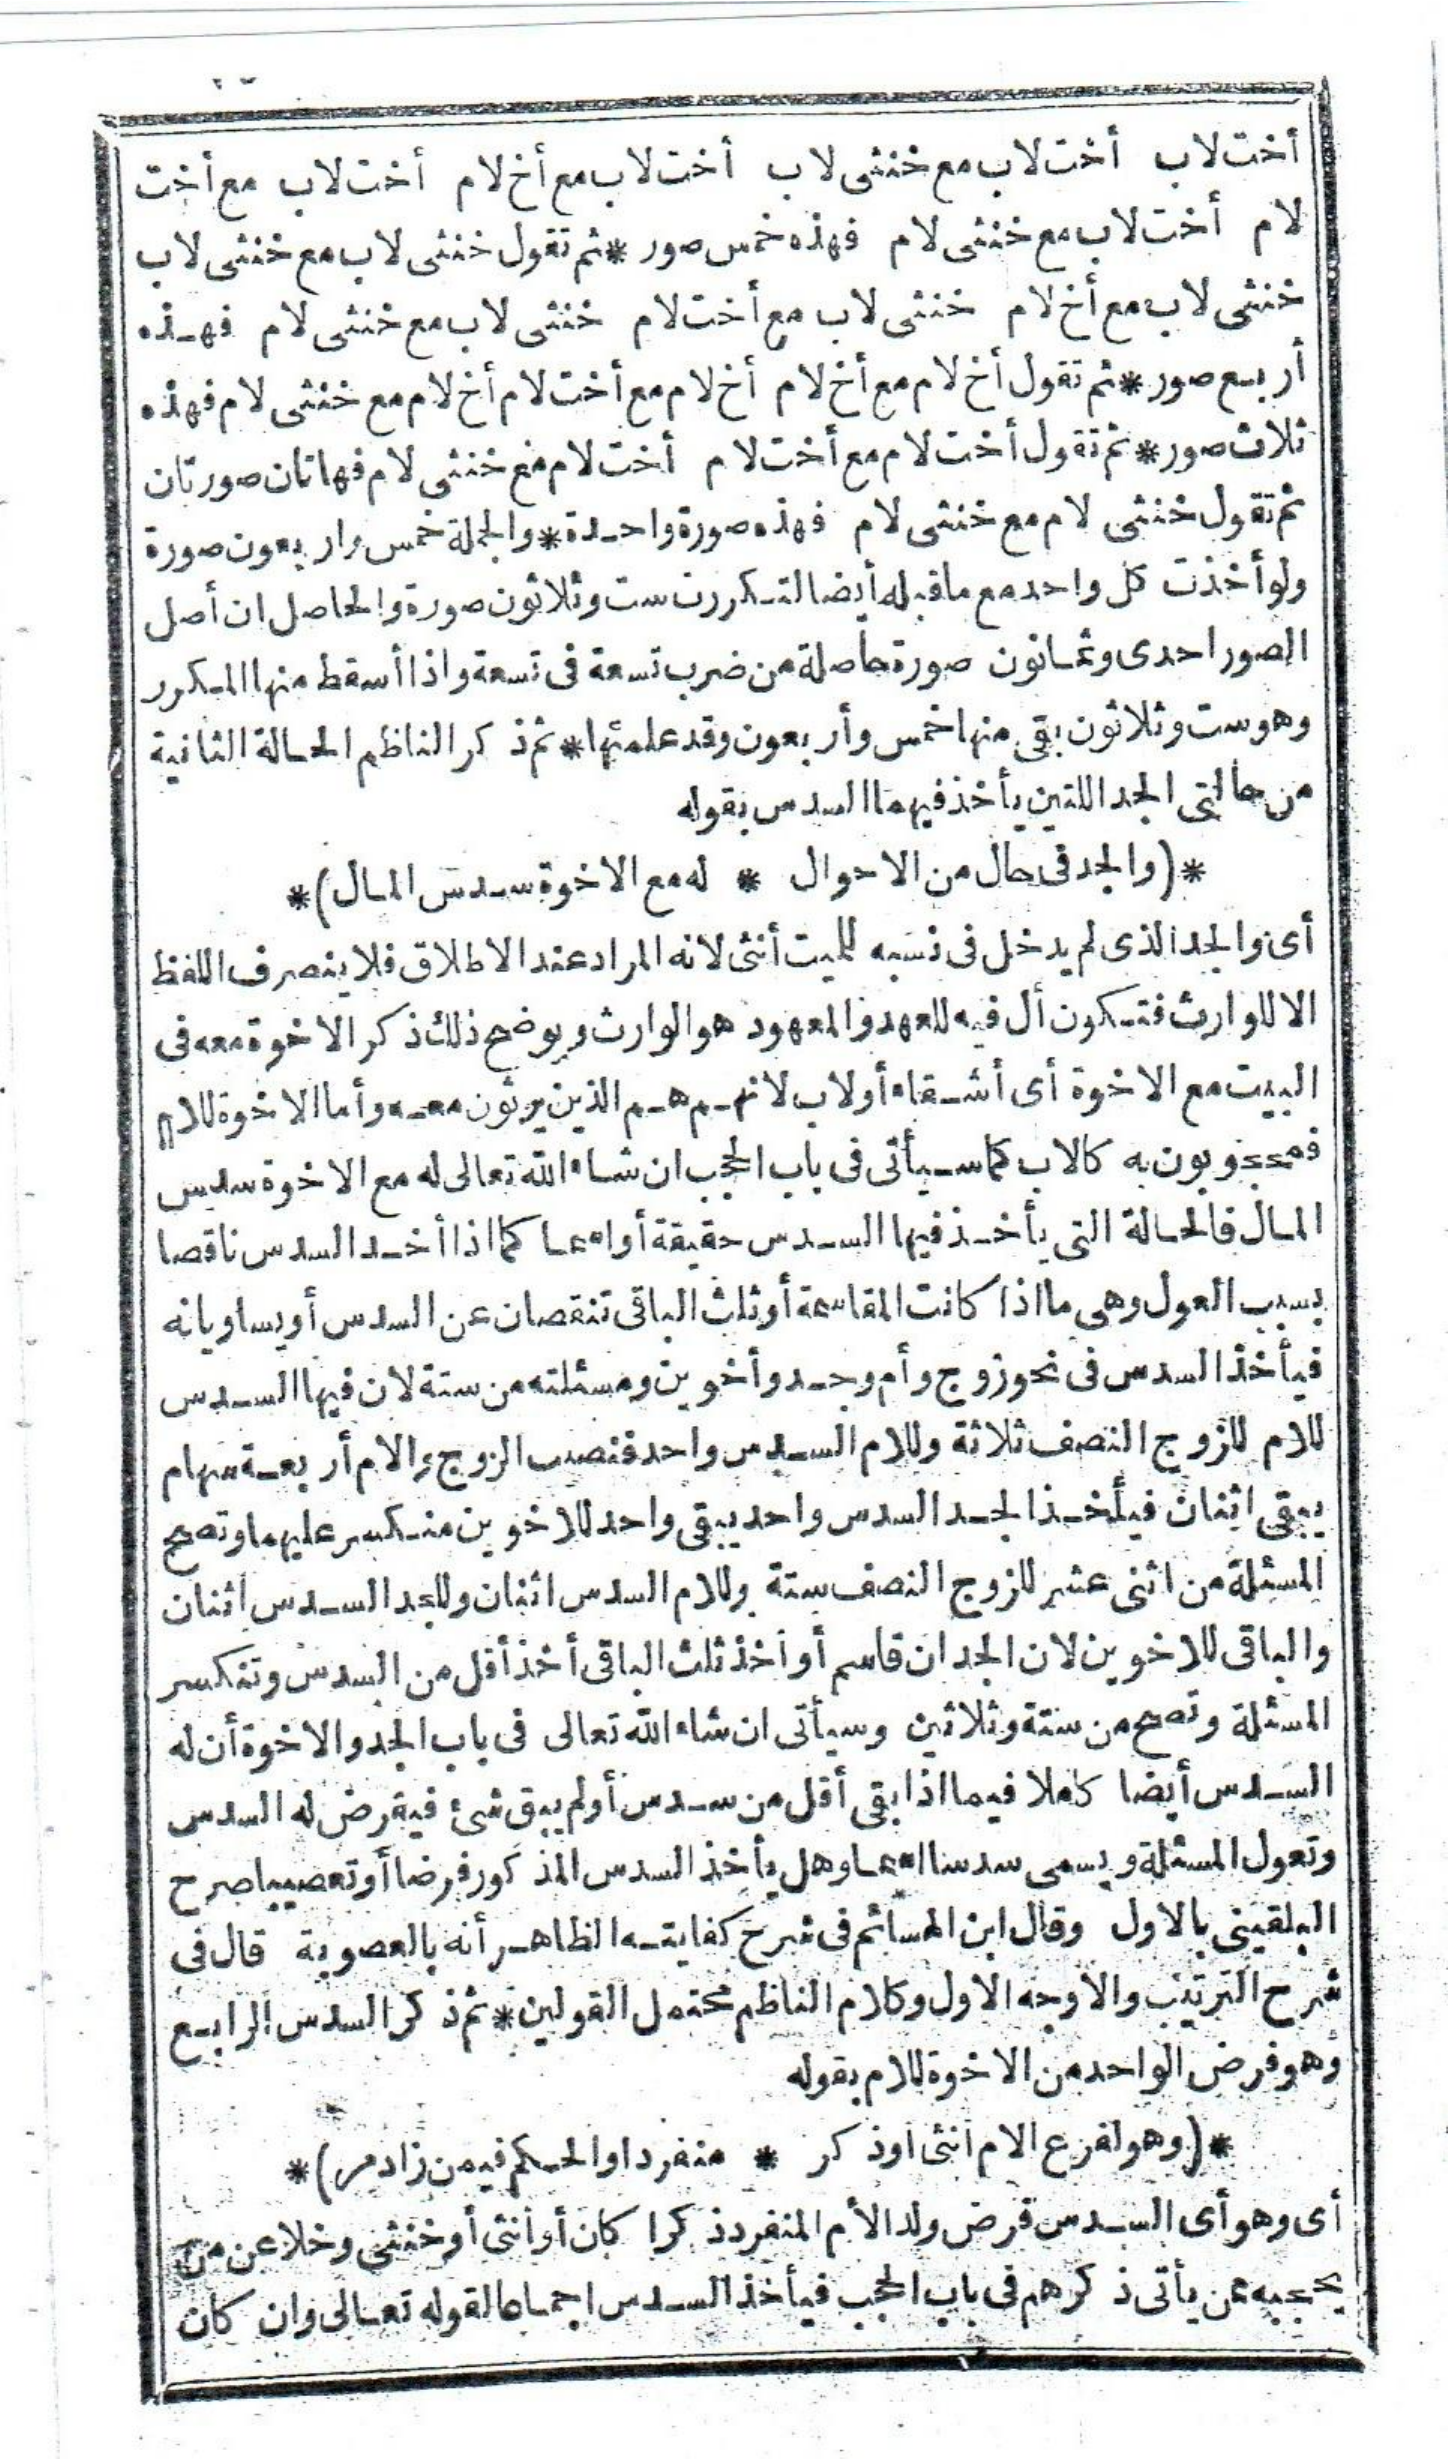 أخت لاب أخت لاب مع خنثى لاب أخت لاب مع أخ لام أخت لاب مع أخت
لام أخت لاب مع خنثى لام فهذه خمس صور * ثم تقول خنثى لاب مع خنثى لاب
خنثى لاب مع أخ لام خنثى لاب مع أخت لام خنثى لاب مع خنثى لام فهذه
أربع صور * ثم تقول أخ لام مع أخ لام أخ لام مع أخت لام أخ لام مع خنثى لام فهذه
ثلاث صور * ثم تقول أخت لام مع أخت لام أخت لام مع خنثى لام فهاتان صورتان
ثم تقول خنثى لام مع خنثى لام فهذه صورة واحدة * والجملة خمس وأربعون صورة
ولو أخذت كل واحد مع ما قبله أيضا لتكررت ست وثلاثون صورة والحاصل ان أصل
الصور احدى وثمانون صورة حاصلة من ضرب تسعة فى تسعة واذا أسقط منها المكرر
وهو ست وثلاثون بقى منها خمس وأربعون وقد علمتها * ثم ذكر الناظم الحالة الثانية
من حالتى الجد اللتين يأخذ فيهما السدس بقوله
*(والجد فى حال من الاحوال * له مع الاخوة سدس المال)*
أى والجد الذى لم يدخل فى نسبه للميت أنثى لانه المراد عند الاطلاق فلا ينصرف اللفظ
الا للوارث فتكون أل فيه للعهد والمعهود هو الوارث ويوضح ذلك ذكر الاخوة معه فى
البيت مع الاخوة أى أشقاء أو لاب لانهم هم الذين يرثون معه وأما الاخوة للام
فمحجوبون به كالاب كما سيأتى فى باب الحجب ان شاء الله تعالى له مع الاخوة سدس
المال فالحالة التى يأخذ فيها السدس حقيقة أو اسما كما اذا أخذ السدس ناقصا
بسبب العول وهى ما اذا كانت المقاسمة أو ثلث الباقى تنقصان عن السدس أو يساويانه
فيأخذ السدس فى نحو زوج وأم وجد وأخوين ومسئلته من ستة لان فيها السدس
للام للزوج النصف ثلاثة وللام السدس واحد فنصيب الزوج والام أربعة سهام
يبقى اثنان فيأخذ الجد السدس واحد يبقى واحد للاخوين منكسر عليهما وتصح
المسئلة من اثنى عشر للزوج النصف ستة وللام السدس اثنان وللجد السدس اثنان
والباقى للاخوين لان الجد ان قاسم أو أخذ ثلث الباقى أخذ أقل من السدس وتنكسر
المسئلة وتصح من ستة وثلاثين وسيأتى ان شاء الله تعالى فى باب الجد والاخوة أن له
السدس أيضا كاملا فيما اذا بقى أقل من سدس أو لم يبق شئ فيفرض له السدس
وتعول المسئلة ويسمى سدسا اسما وهل يأخذ السدس المذكور فرضا أو تعصيبا صرح
البلقينى بالاول وقال ابن الهائم فى شرح كفايته الظاهر أنه بالعصوبة قال فى
شرح الترتيب والاوجه الاول وكلام الناظم محتمل القولين * ثم ذكر السدس الرابع
وهو فرض الواحد من الاخوة للام بقوله
*(وهو لفرع الام أنثى أو ذكر * منفردا والحكم فيمن زاد مر)*
أى وهو أى السدس فرض ولد الأم المنفرد ذكرا كان أو أنثى أو خنثى وخلا عن من
يحجبه ممن يأتى ذكرهم فى باب الحجب فيأخذ السدس اجماعا لقوله تعالى وان كان